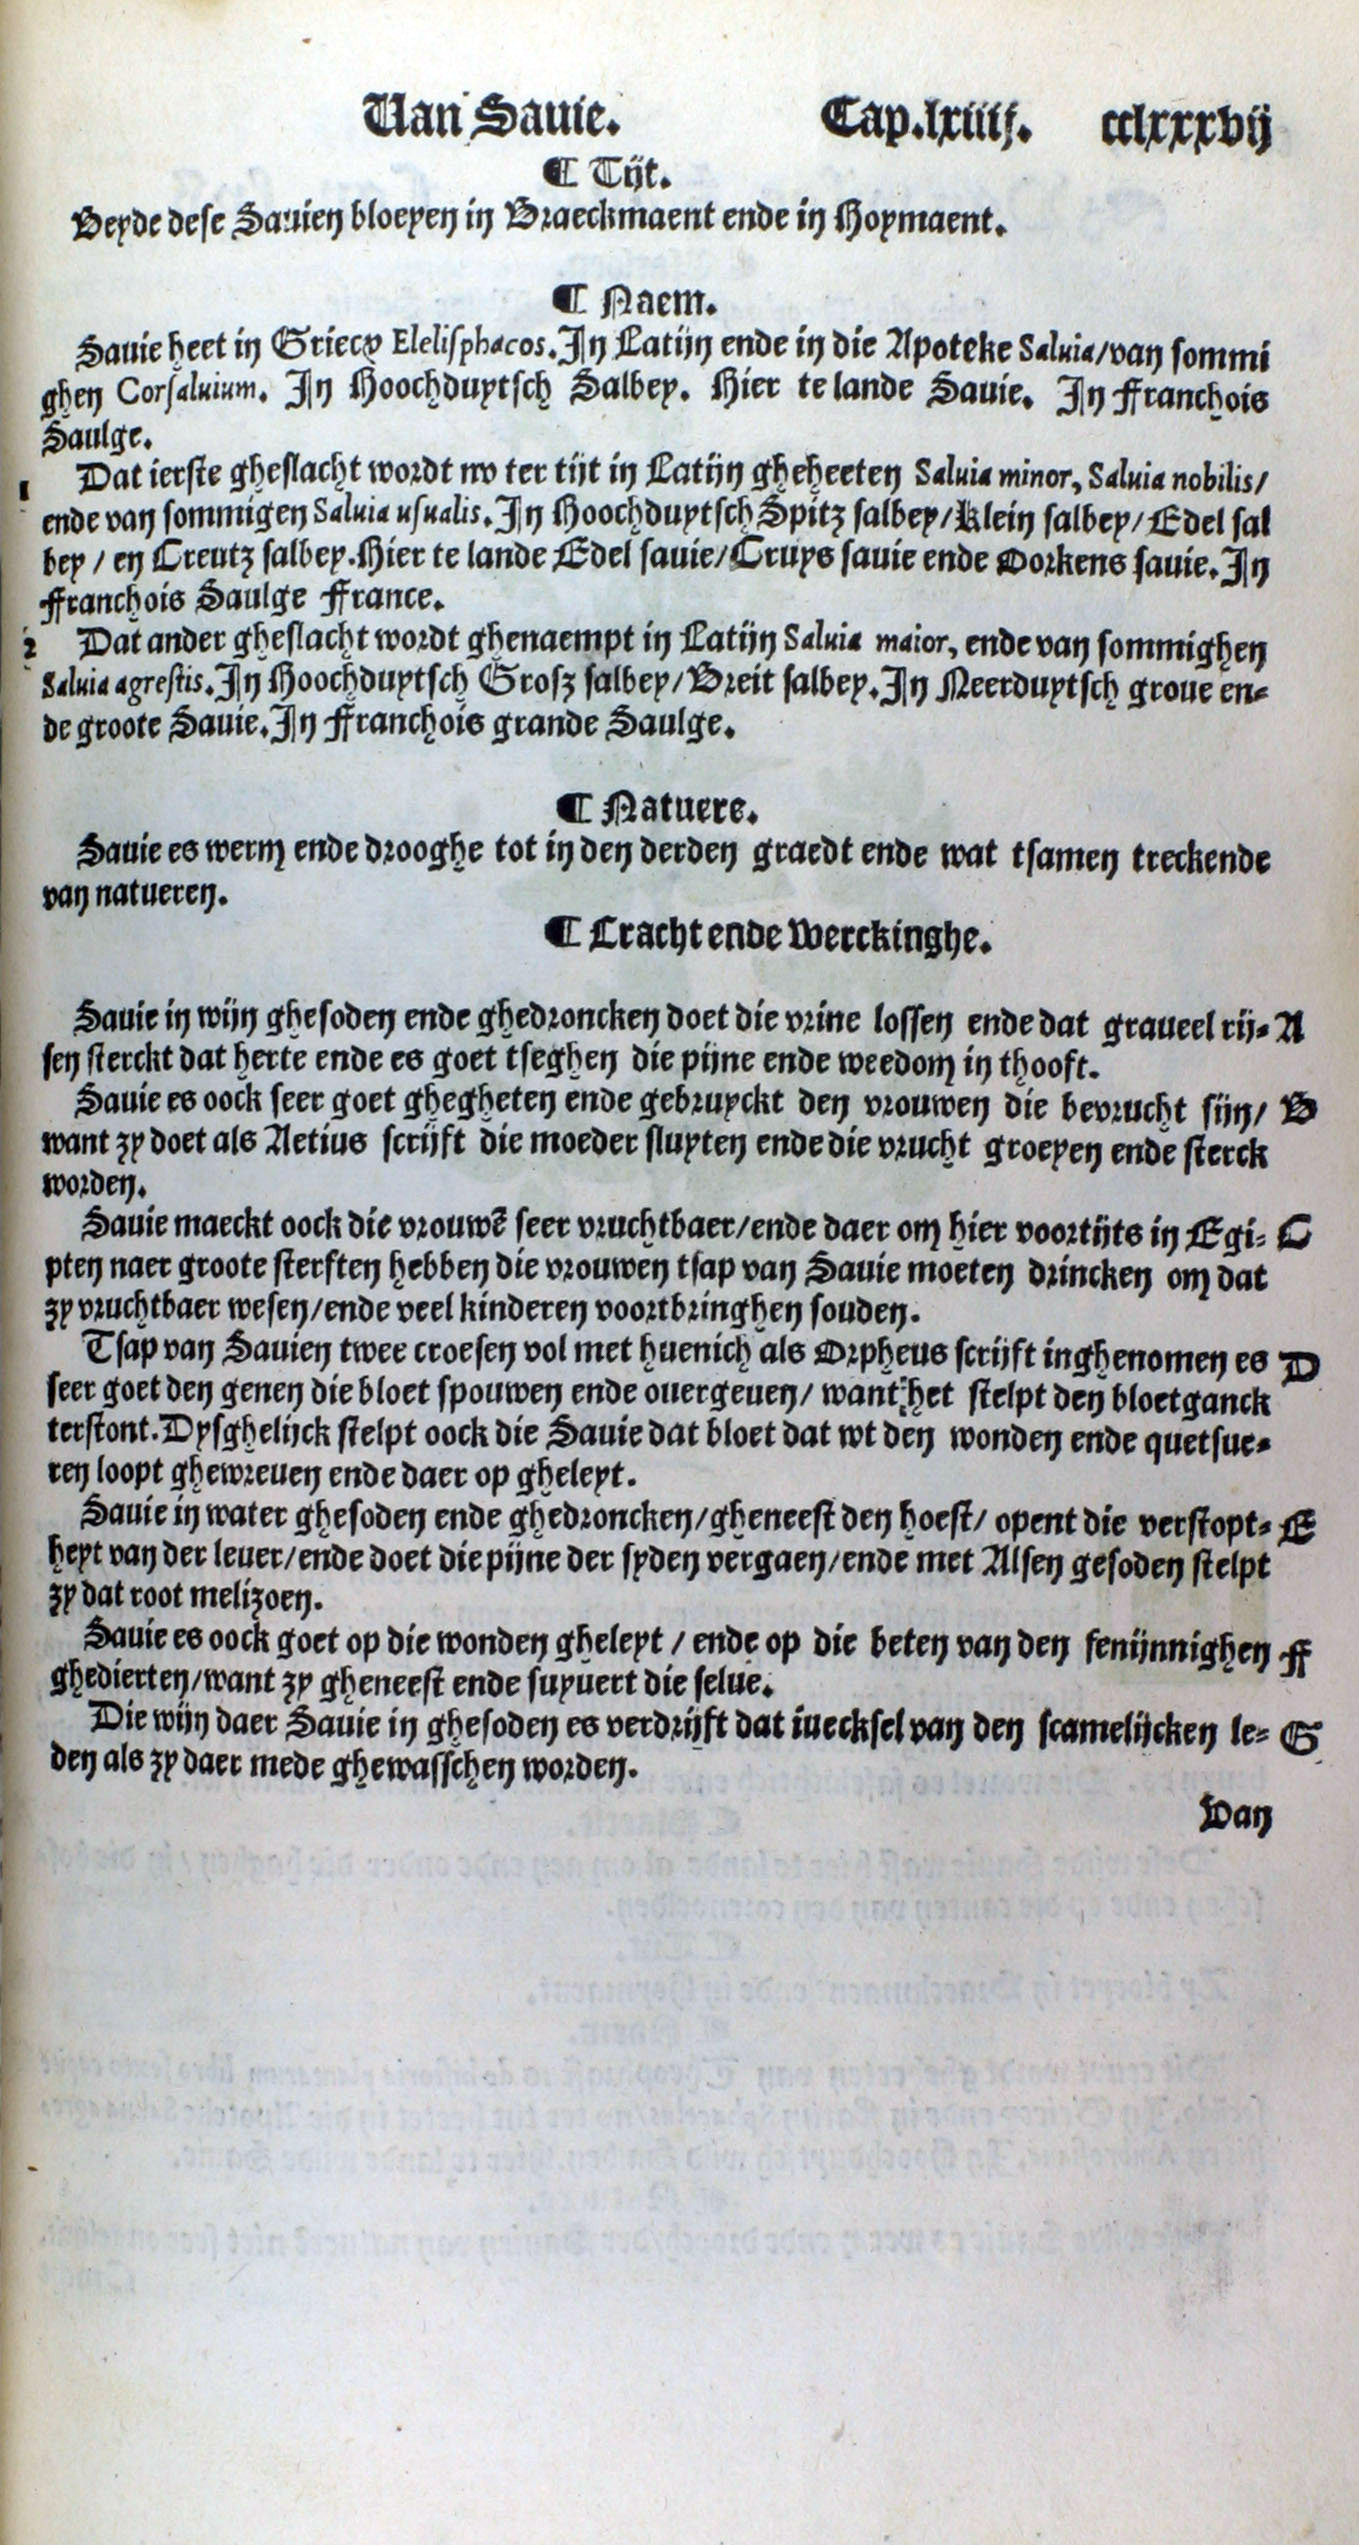 Van Sauie. Cap.lxiiij. cclxxxvij
¶ Tijt.
Beyde dese Sauien bloeyen in Braeckmaent ende in Hoymaent.
¶ Naem.
Sauie heet in Griecx Elelisphacos. In Latijn ende in die Apoteke Saluia/van sommi
ghen Corsaluium. In Hoochduytsch Salbey. Hier te lande Sauie. In Franchois
Saulge.
1 Dat ierste gheslacht wordt nv ter tijt in Latijn gheheeten Saluia minor, Saluia nobilis/
ende van sommigen Saluia usualis. In Hoochduytsch Spitz salbey/Klein salbey/Edel sal
bey/ en Creutz salbey. Hier te lande Edel sauie/Cruys sauie ende Oorkens sauie. In
Franchois Saulge France.
2 Dat ander gheslacht wordt ghenaempt in Latijn Saluia maior, ende van sommighen
Saluia agrestis. In Hoochduytsch Grosz salbey/Breit salbey. In Neerduytsch groue en-
de groote Sauie. In Franchois grande Saulge.
¶ Natuere.
Sauie es werm ende drooghe tot in den derden graedt ende wat tsamen treckende
van natueren.
¶ Cracht ende Werckinghe.
Sauie in wijn ghesoden ende ghedroncken doet die vrine lossen ende dat graueel rij- A
sen sterckt dat herte ende es goet tseghen die pijne ende weedom in thooft.
Sauie es oock seer goet ghegheten ende gebruyckt den vrouwen die bevrucht sijn/ B
want zy doet als Aetius scrijft die moeder sluyten ende die vrucht groeyen ende sterck
worden.
Sauie maeckt oock die vrouwē seer vruchtbaer/ende daer om hier voortijts in Egi- C
pten naer groote sterften hebben die vrouwen tsap van Sauie moeten drincken om dat
zy vruchtbaer wesen/ende veel kinderen voortbringhen souden.
Tsap van Sauien twee croesen vol met huenich als Orpheus scrijft inghenomen es D
seer goet den genen die bloet spouwen ende ouergeuen/ want het stelpt den bloetganck
terstont. Dysghelijck stelpt oock die Sauie dat bloet dat wt den wonden ende quetsue-
ren loopt ghewreuen ende daer op gheleyt.
Sauie in water ghesoden ende ghedroncken/gheneest den hoest/ opent die verstopt- E
heyt van der leuer/ende doet die pijne der syden vergaen/ende met Alsen gesoden stelpt
zy dat root melizoen.
Sauie es oock goet op die wonden gheleyt / ende op die beten van den fenijnnighen F
ghedierten/want zy gheneest ende suyuert die selue.
Die wijn daer Sauie in ghesoden es verdrijft dat iuecksel van den scamelijcken le- G
den als zy daer mede ghewasschen worden.
Van